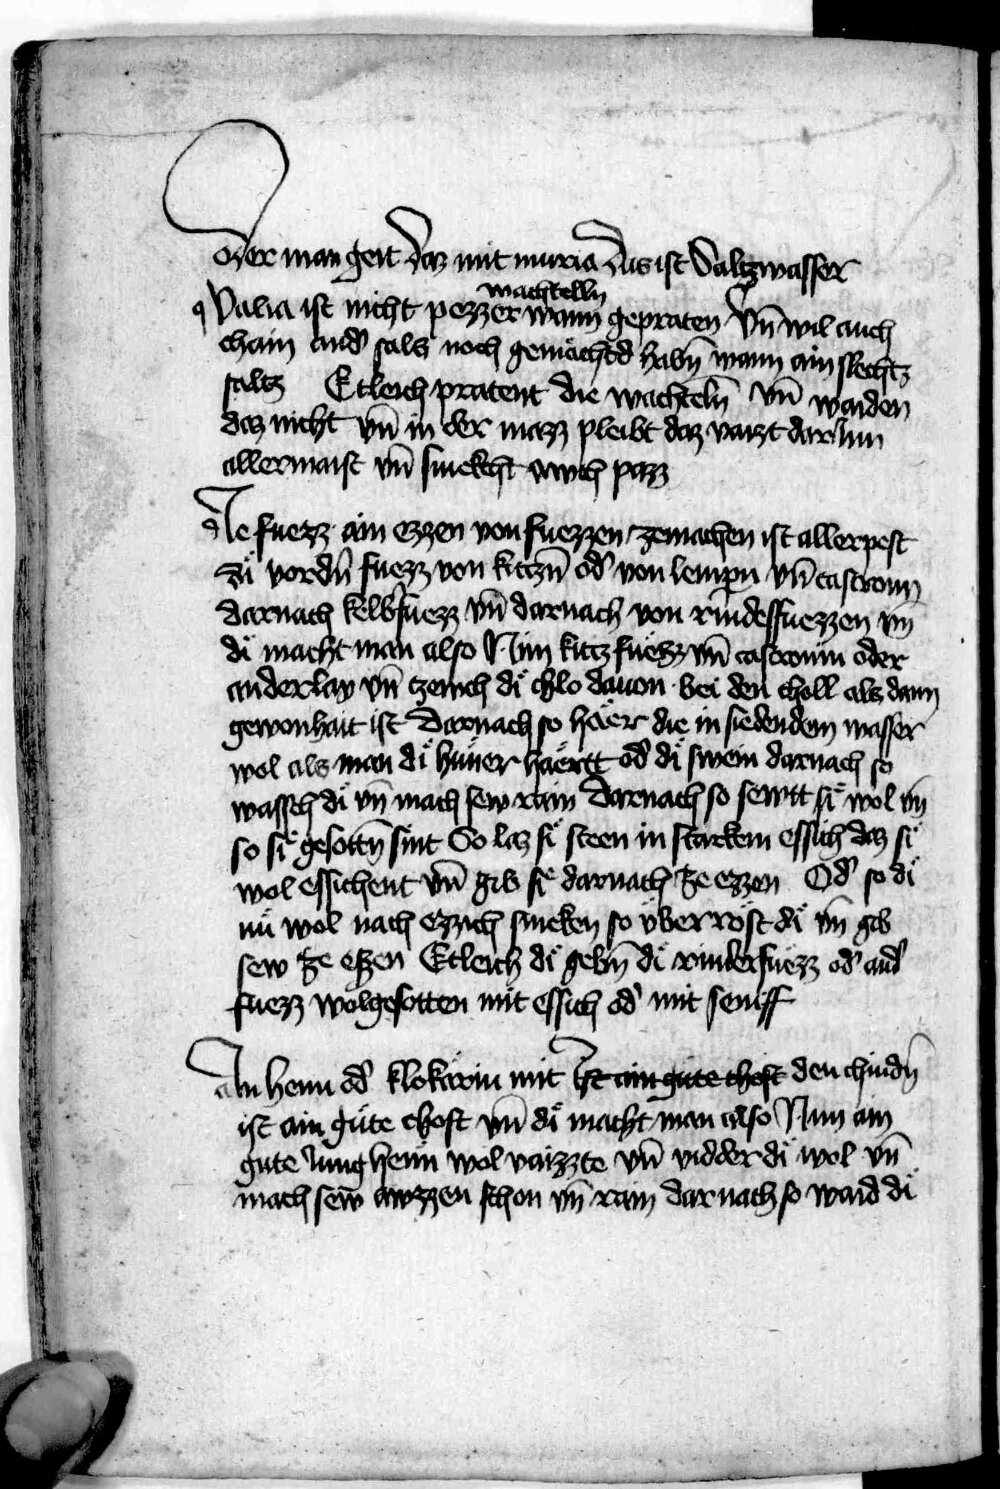 Oder man geit daz mit muria das ist Saltzwasser
wachtelln
Qualia ist nicht pezzer wann gepraten Vn̄ wil auch
chain and̾ sals noch gemächtd habn̄ wann ain slechtz
saltz Etleich pratent die wachteln̄ vn̄ waiden
daz nicht vn̄ in der mazz pleibt daz vaizt darInn
allermaist vn̄ smekcht awch pazz
Die fuezz ain ezzen von fuezzen zemachen ist allerpest
di vordn̄ fuezz von kitzn̄ od̾ von lempn vn̄ castrown
darnach kelbsfuezz vn̄ darnach von rindesfuezzen vn̄
di macht man also Nim kitzfuezz vn̄ castrowin oder
anderlay vn̄ tzewch di chlo dauon bei den choll als dann
gewonhait ist Darnach so häer die in siedendem wasser
wol als man di hüner häertt od̾ di swein darnach so
wassch di vn̄ mach sew rain Darnach so sewtt si wol vn̄
so si gesottn̄ sint So laz si steen in starkem essich daz si
wol essichent vn̄ gib si darnach ze ezzen Od̾ so di
nu wol nach ezzich smeken so vberröst di vn̄ gib
sew ze essen Etleich di gebn̄ di rinderfuezz od̾ and̾
fuezz wolgesotten mit essich od̾ mit seniff
Ain henn od̾ klokärin mit Ist ain güte chost den chindn̄
ist ain güte chost vn̄ di macht man also Nim ain
gute Jung henn wol vaizzte vn̄ vidder di wol vn̄
mach sew awzzen schon vn̄ rain darnach so waid di